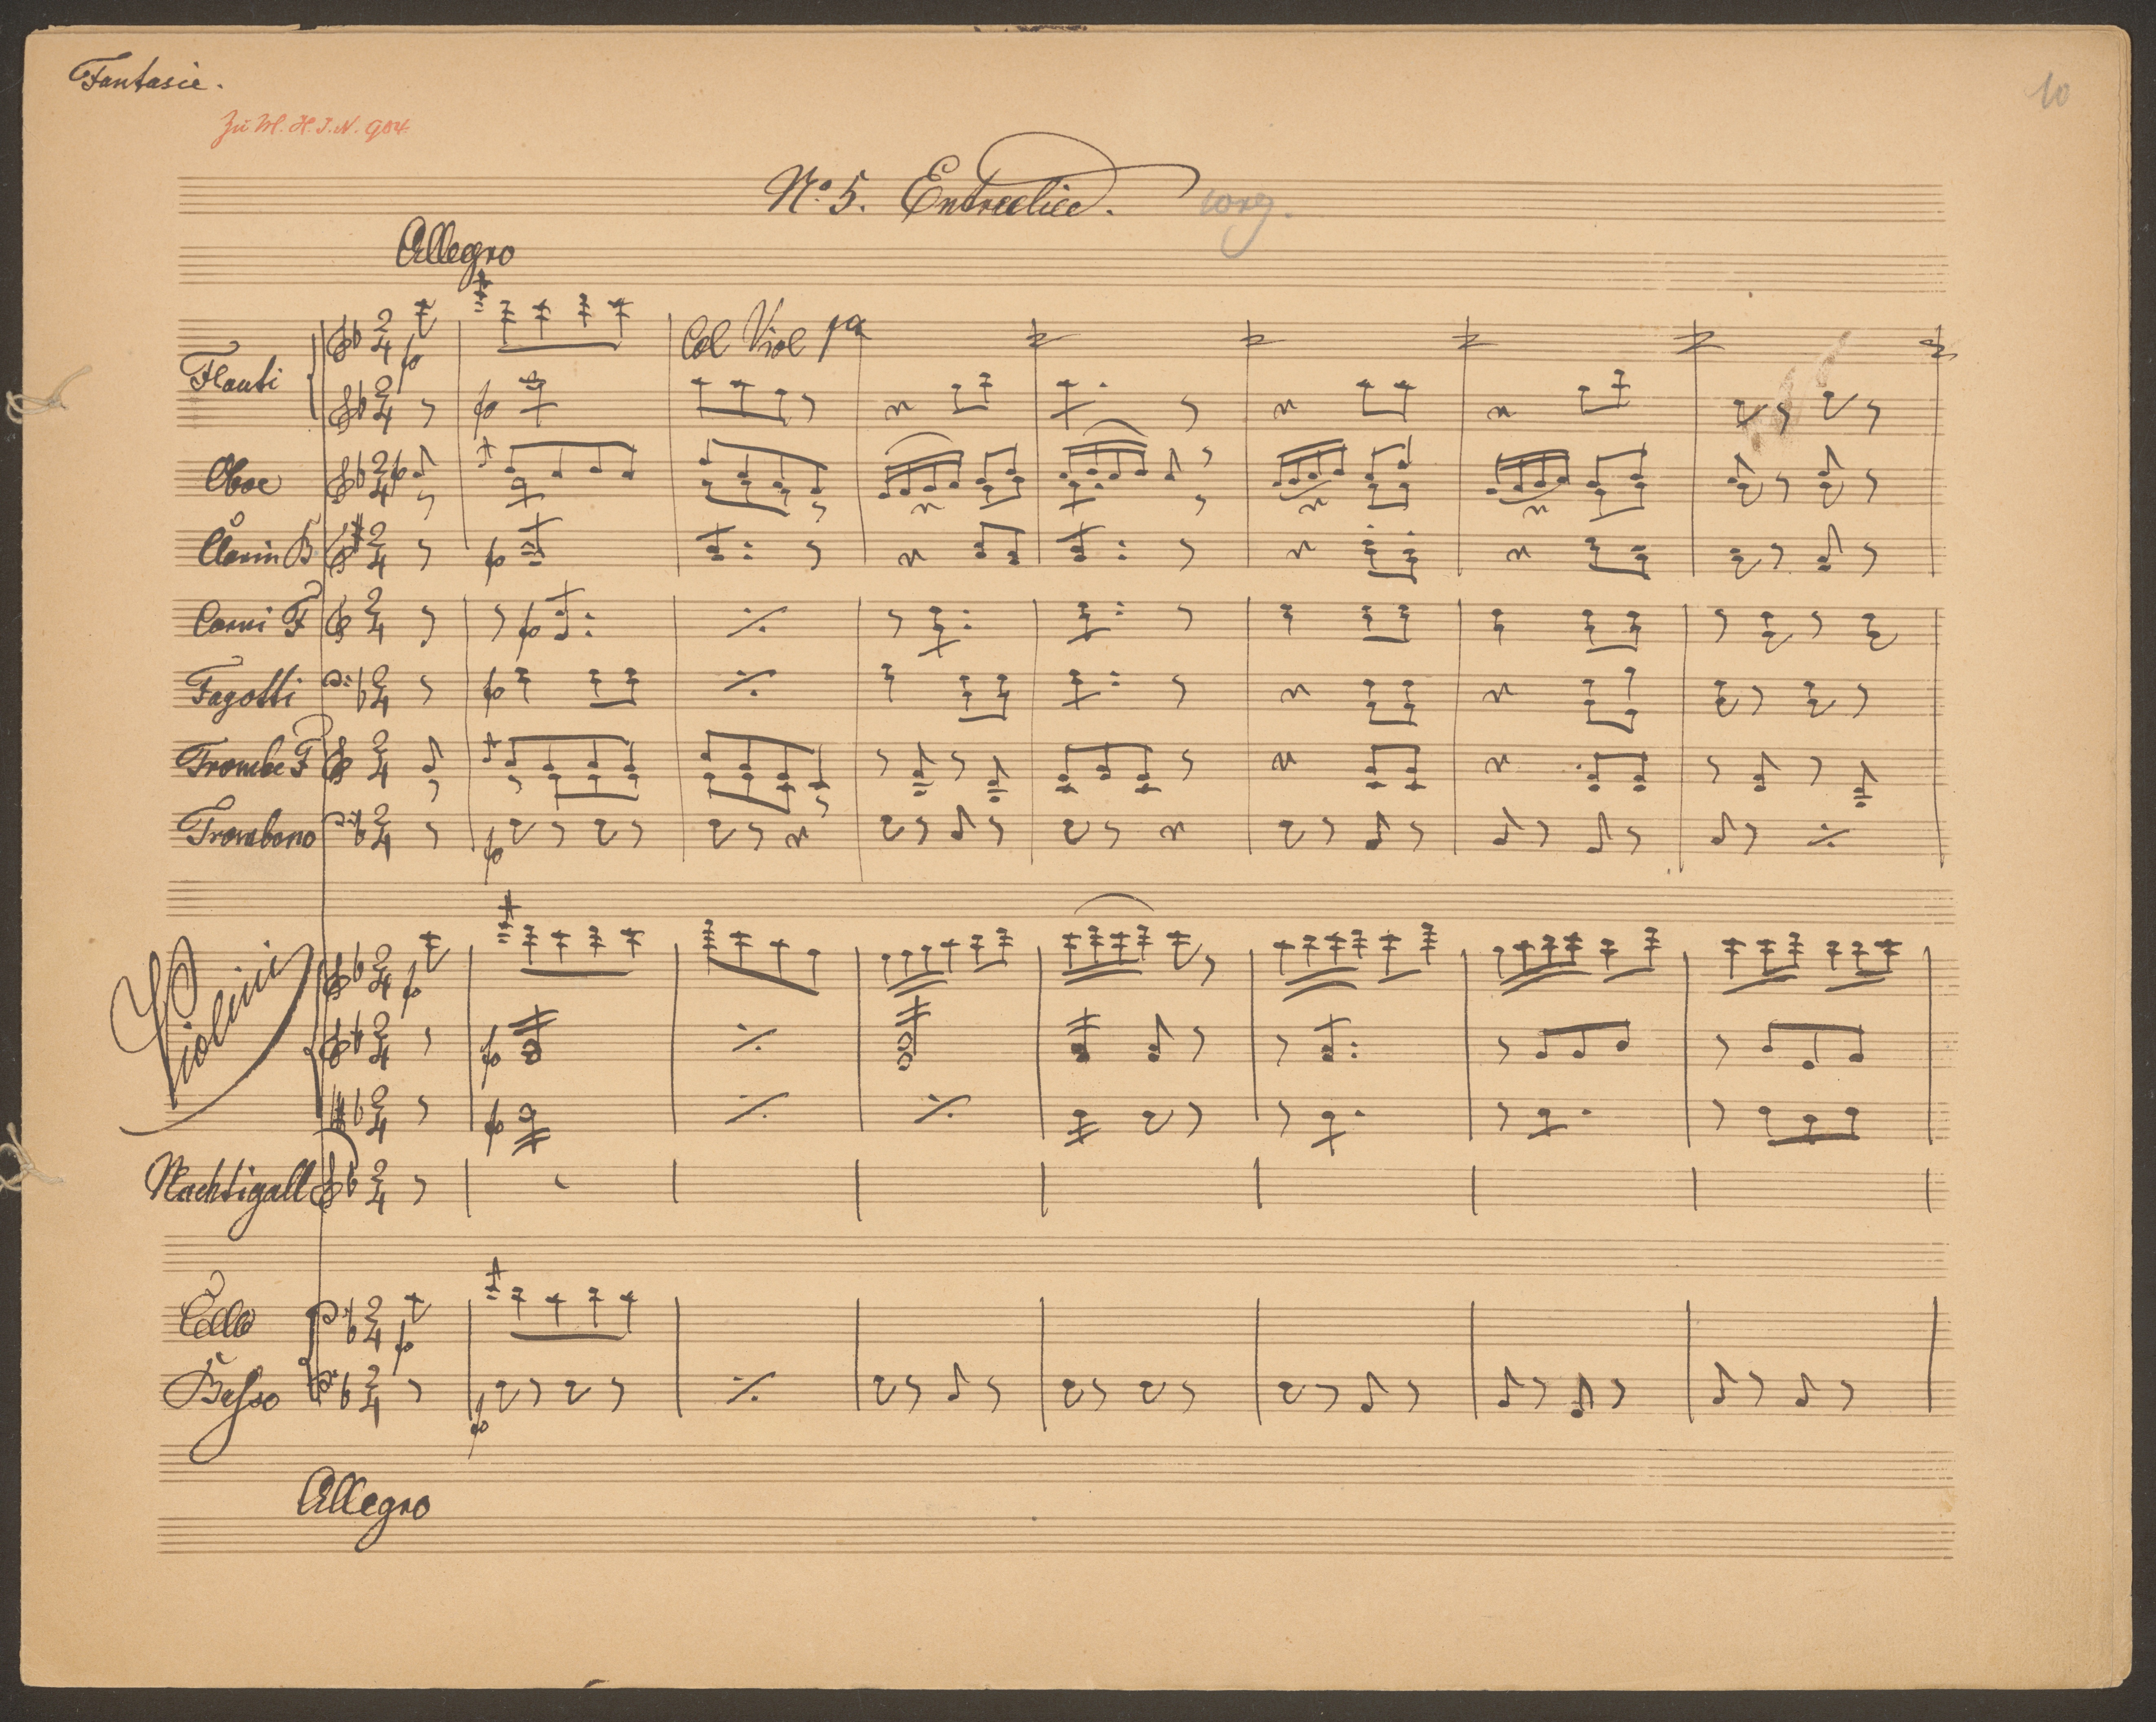 Fantasie.
10
Zu M. H. I. N. 904
No. 5. Entreelied.
corg.
Allegro
Flauti
Col Viol 1a
Oboe
Clarin B
Corni F
Fagotti
Trombe F
Trombono
Violini
Nachtigall
Cello
Basso
Allegro